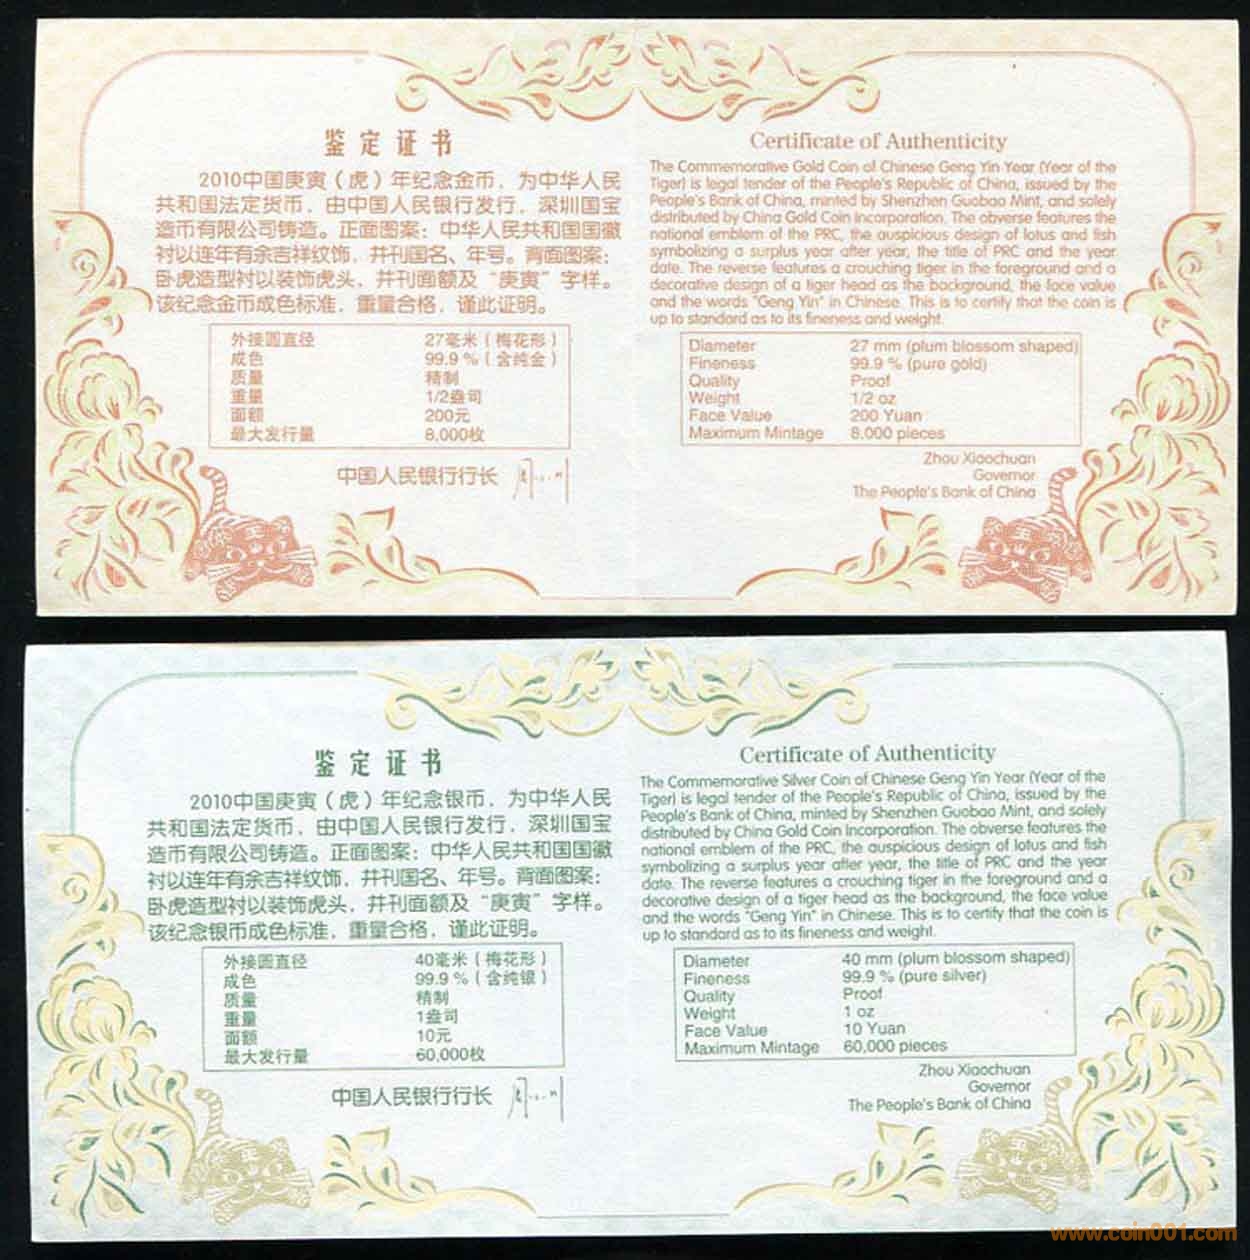 鉴定证书
2010中国庚寅（虎）年纪念金币，为中华人民
共和国法定货币，由中国人民银行发行，深圳国宝
造币有限公司铸造。正面图案：中华人民共和国国徽
衬以连年有余吉祥纹饰，并刊国名、年号。背面图案：
卧虎造型衬以装饰虎头，并刊面额及“庚寅”字样。
该纪念金币成色标准，重量合格，谨此证明。
外接圆直径 27毫米（梅花形）
成色 99.9%（含纯金）
质量 精制
重量 1/2盎司
面额 200元
最大发行量 8,000枚
中国人民银行行长
Certificate of Authenticity
The Commemorative Gold Coin of Chinese Geng Yin Year (Year of the
Tiger) is legal tender of the People's Republic of China, issued by the
People's Bank of China, minted by Shenzhen Guobao Mint, and solely
distributed by China Gold Coin Incorporation. The obverse features the
national emblem of the PRC, the auspicious design of lotus and fish
symbolizing a surplus year after year, the title of PRC and the year
date. The reverse features a crouching tiger in the foreground and a
decorative design of a tiger head as the background, the face value
and the words "Geng Yin" in Chinese. This is to certify that the coin is
up to standard as to its fineness and weight.
Diameter 27 mm (plum blossom shaped)
Fineness 99.9 % (pure gold)
Quality Proof
Weight 1/2 oz
Face Value 200 Yuan
Maximum Mintage 8,000 pieces
Zhou Xiaochuan
Governor
The People's Bank of China
鉴定证书
2010中国庚寅（虎）年纪念银币，为中华人民
共和国法定货币，由中国人民银行发行，深圳国宝
造币有限公司铸造。正面图案：中华人民共和国国徽
衬以连年有余吉祥纹饰，并刊国名、年号。背面图案：
卧虎造型衬以装饰虎头，并刊面额及“庚寅”字样。
该纪念银币成色标准，重量合格，谨此证明。
外接圆直径 40毫米（梅花形）
成色 99.9%（含纯银）
质量 精制
重量 1盎司
面额 10元
最大发行量 60,000枚
中国人民银行行长
Certificate of Authenticity
The Commemorative Silver Coin of Chinese Geng Yin Year (Year of the
Tiger) is legal tender of the People's Republic of China, issued by the
People's Bank of China, minted by Shenzhen Guobao Mint, and solely
distributed by China Gold Coin Incorporation. The obverse features the
national emblem of the PRC, the auspicious design of lotus and fish
symbolizing a surplus year after year, the title of PRC and the year
date. The reverse features a crouching tiger in the foreground and a
decorative design of a tiger head as the background, the face value
and the words "Geng Yin" in Chinese. This is to certify that the coin is
up to standard as to its fineness and weight.
Diameter 40 mm (plum blossom shaped)
Fineness 99.9 % (pure silver)
Quality Proof
Weight 1 oz
Face Value 10 Yuan
Maximum Mintage 60,000 pieces
Zhou Xiaochuan
Governor
The People's Bank of China
www.coin001.com